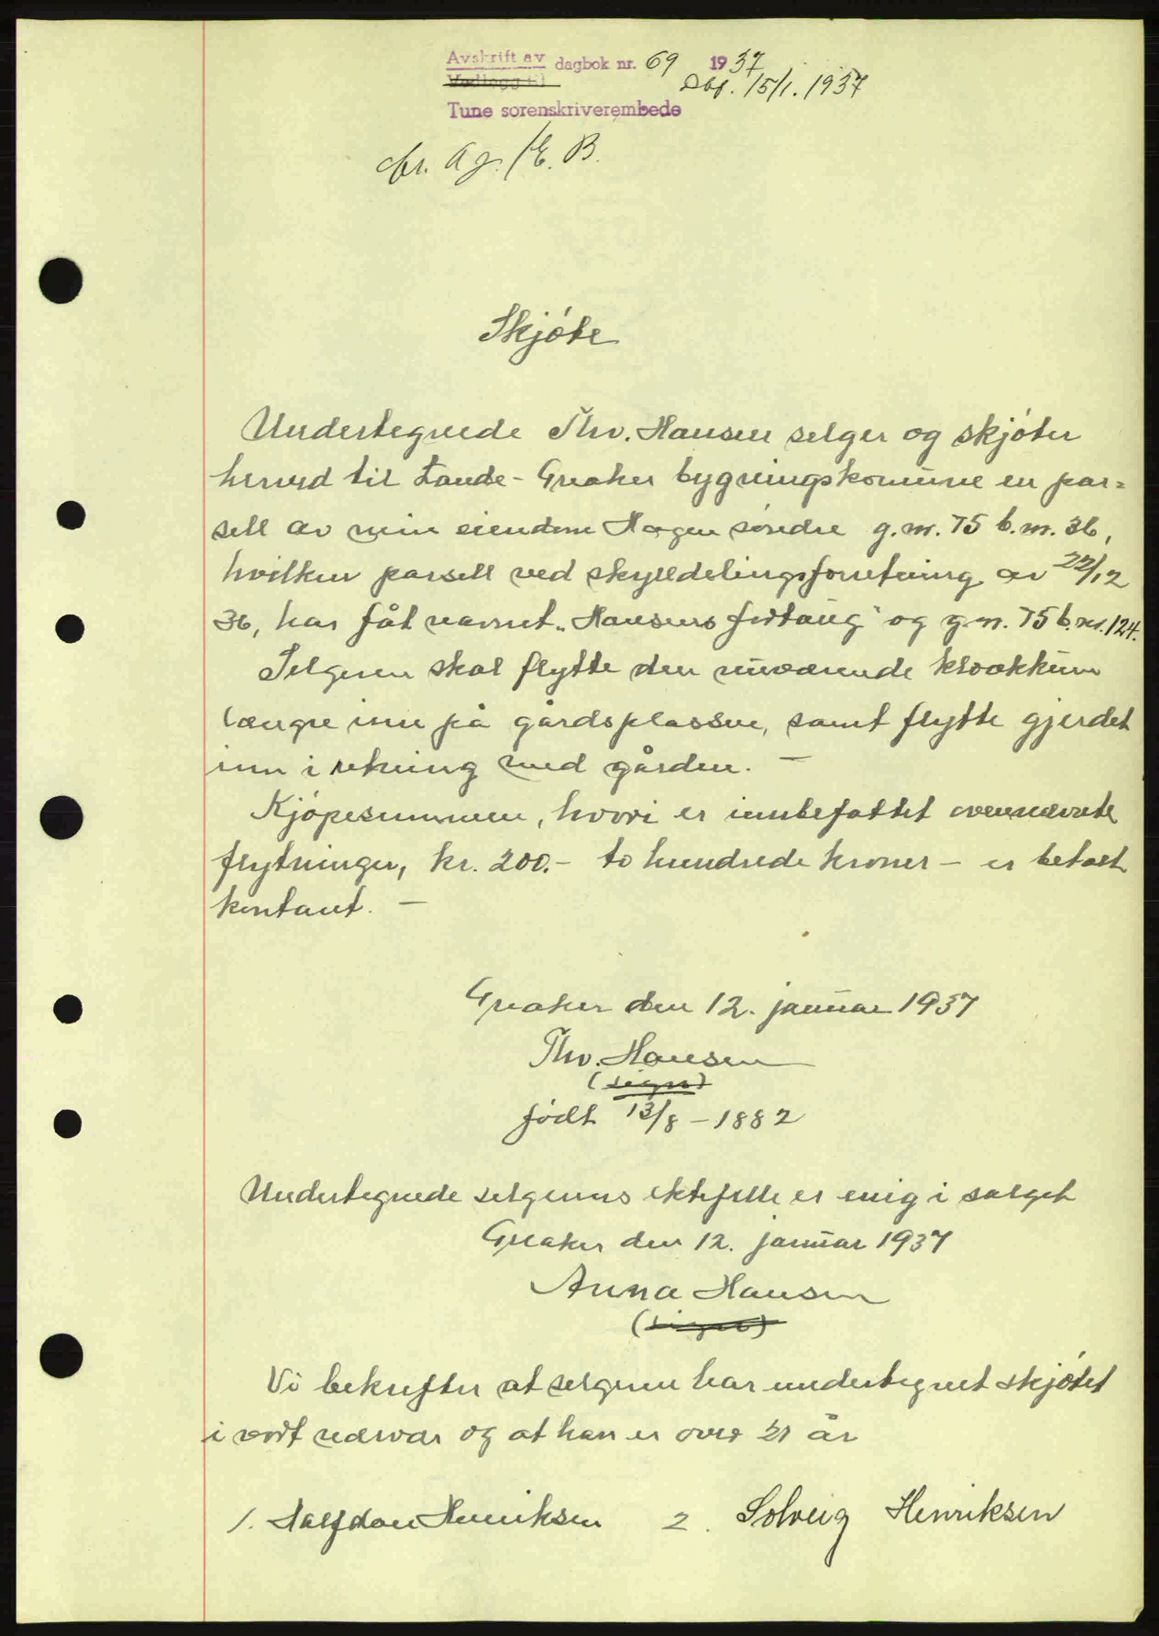 Avskrift av dagbok nr. 69 1937
Vedlegg til Dbf. 15/1. 1937
Tune sorenskriverembede
Skjóte
Undertegnede Thv. Hansen selger og skjóter
herved til Lande-Greaker bygningskomune en par=
sell av min eiendom Hagen søndre g.nr. 75 b.nr. 36,
hvilken parsell ved skylddelingsforretning av 22/12
36, har fåt navnet "Hansens fortaug" og g.nr. 75 b.nr. 124.
Selgeren skal flytte den nuværende kloakkum
længre inn på gårdsplassen, samt flytte gjerdet
inn i rekning med gården. —
Kjópesummen, hvori er innbefattet ovennævnte
flytninger, kr. 200.- to hundrede kroner - er betalt
kontant. —
Greaker den 12. januar 1937
Thv. Hansen
(sign)
født 13/8 - 1882
Undertegnede selgerens ektefelle er enig i salget
Greaker den 12. januar 1937
Anna Hansen
(sign)
Vi bekrefter at selgeren har undertegnet skjótet
i vort nærvær og at han er over 21 år
1. Halfdan Henriksen 2. Solveig Henriksen